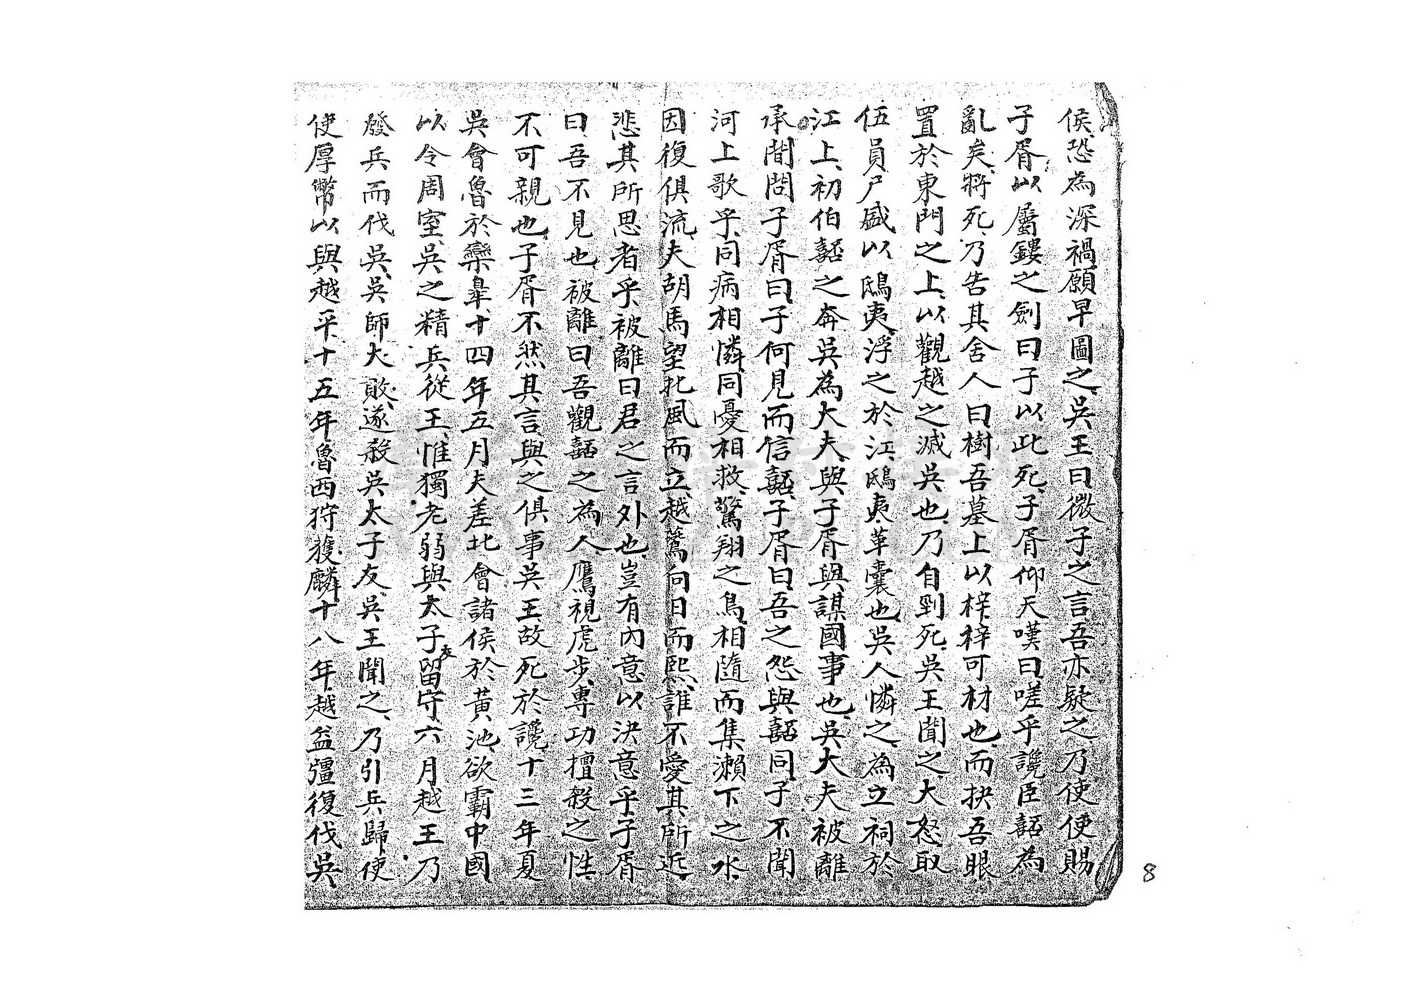 侯恐為深禍願早圖之吳王曰微子之言吾亦疑之乃使使賜
子胥以屬鏤之劍曰子以此死子胥仰天嘆曰嗟乎讒臣嚭為
亂矣將死乃告其舍人曰樹吾墓上以梓梓可材也而抉吾眼
置於東門之上以觀越之滅吳也乃自剄死吳王聞之大怒取
伍員尸盛以鴟夷浮之於江鴟夷革囊也吳人憐之為立祠於
江上初伯嚭之奔吳為大夫與子胥與謀國事也吳大夫被離
承間問子胥曰子何見而信嚭子胥曰吾之怨與嚭同子不聞
河上歌乎同病相憐同憂相救驚翔之鳥相隨而集瀨下之水
因復俱流夫胡馬望北風而立越鷰向日而熙誰不愛其所近
悲其所思者乎被離曰君之言外也豈有內意以決意乎子胥
曰吾不見也被離曰吾觀嚭之為人鷹視虎步專功擅殺之性
不可親也子胥不然其言與之俱事吳王故死於讒十三年夏
吳會魯於橐皐十四年五月夫差北會諸侯於黃池欲霸中國
以令周室吳之精兵從王惟獨老弱與太子友留守六月越王乃
發兵而伐吳吳師大敗遂殺吳太子友吳王聞之乃引兵歸使
使厚幣以與越平十五年魯西狩獲麟十八年越益彊復伐吳
8